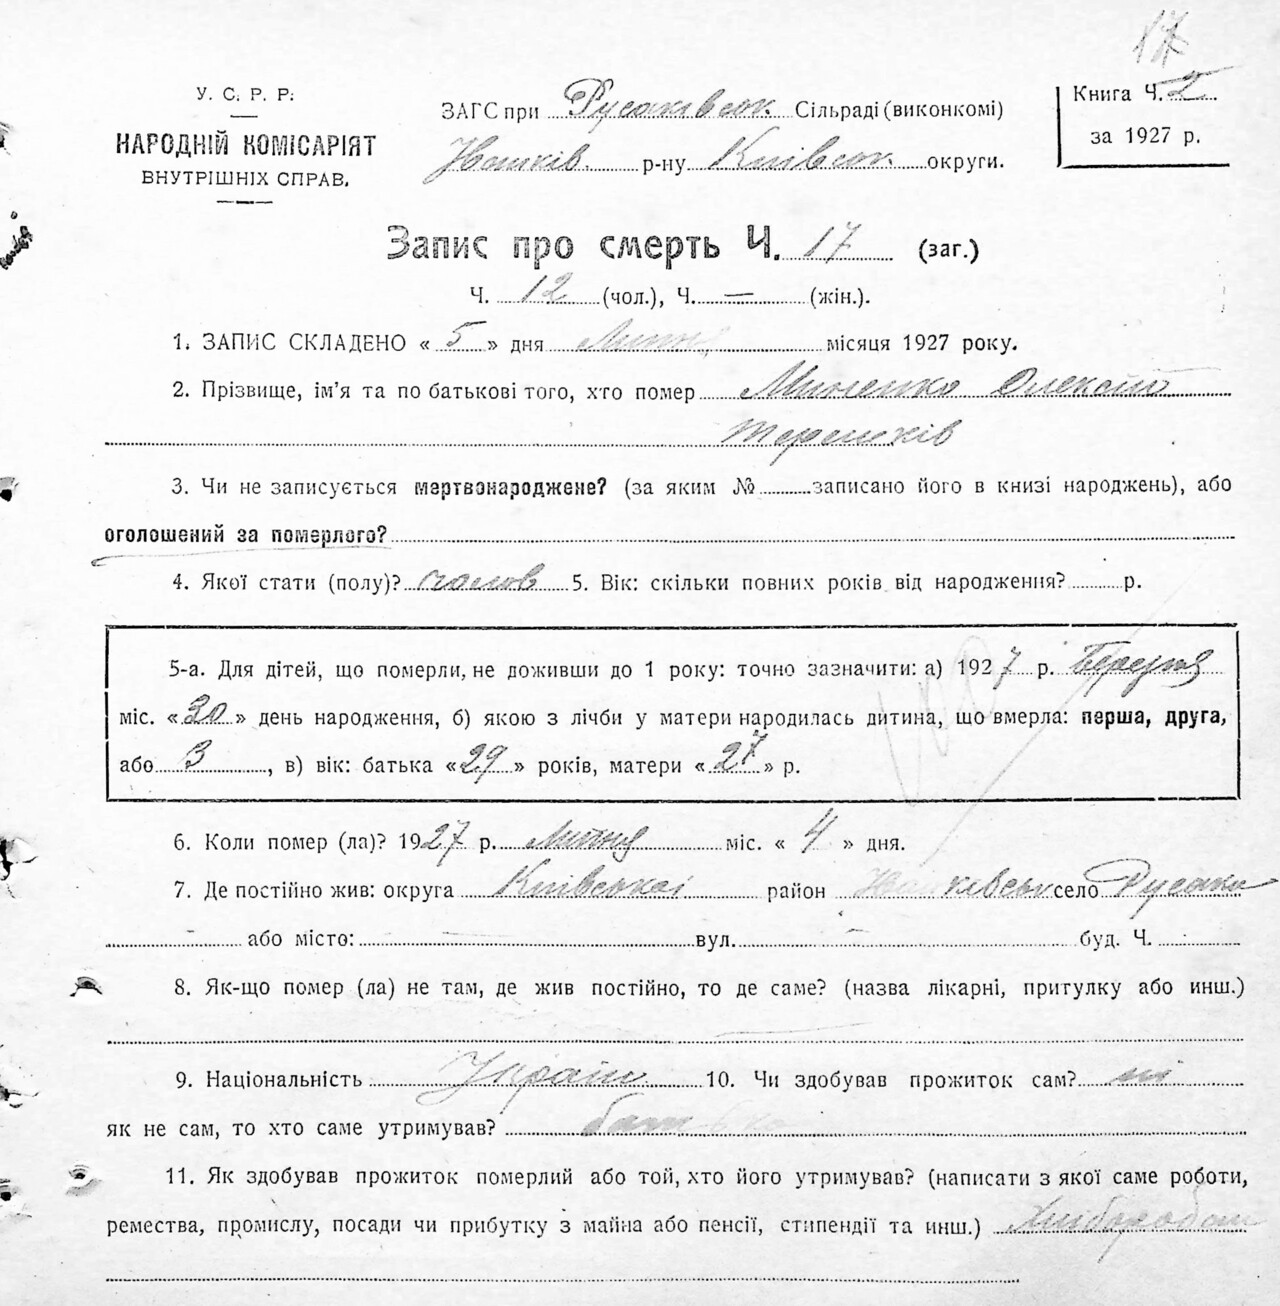 17
У. С. Р. Р.
НАРОДНІЙ КОМІСАРІЯТ
ВНУТРІШНІХ СПРАВ.
ЗАГС при Русаківськ. Сільраді (виконкомі)
р-ну Київськ. округи.
Книга Ч. 2
за 1927 р.
Запис про смерть Ч. 17 (заг.)
Ч. 12 (чол.), Ч. — (жін.).
1. ЗАПИС СКЛАДЕНО « 5 » дня Липня місяця 1927 року.
2. Прізвище, ім'я та по батькові того, хто помер Миненко Олексій
Терешків
3. Чи не записується мертвонароджене? (за яким № записано його в книзі народжень), або
оголошений за померлого?
4. Якої стати (полу)? чолов 5. Вік: скільки повних років від народження? р.
5-а. Для дітей, що померли, не доживши до 1 року: точно зазначити: а) 1927 р. Березня
міс. «30» день народження, б) якою з лічби у матери народилась дитина, що вмерла: перша, друга,
або 3, в) вік: батька «29» років, матери «27» р.
6. Коли помер (ла)? 1927 р. Липня міс. « 4 » дня.
7. Де постійно жив: округа Київської район село Русаки
— або місто: — вул. — буд. Ч.
8. Як-що помер (ла) не там, де жив постійно, то де саме? (назва лікарні, притулку або инш.)
—
9. Національність Україн. 10. Чи здобував прожиток сам? ні
як не сам, то хто саме утримував? батько
11. Як здобував прожиток померлий або той, хто його утримував? (написати з якої саме роботи,
ремества, промислу, посади чи прибутку з майна або пенсії, стипендії та инш.) Хлібороб